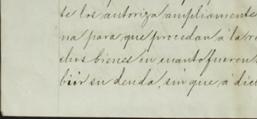 se los autoriza ampliamente
na para que procedan á la r
chos bienes en cuanto fueren
brir su deuda, sin que á dic